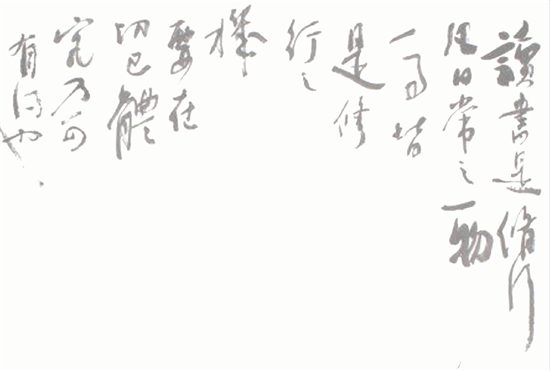 讀書是修行
凡日常之一物
一事皆
是修
行之
機
要在
切己體
究乃可
有得也